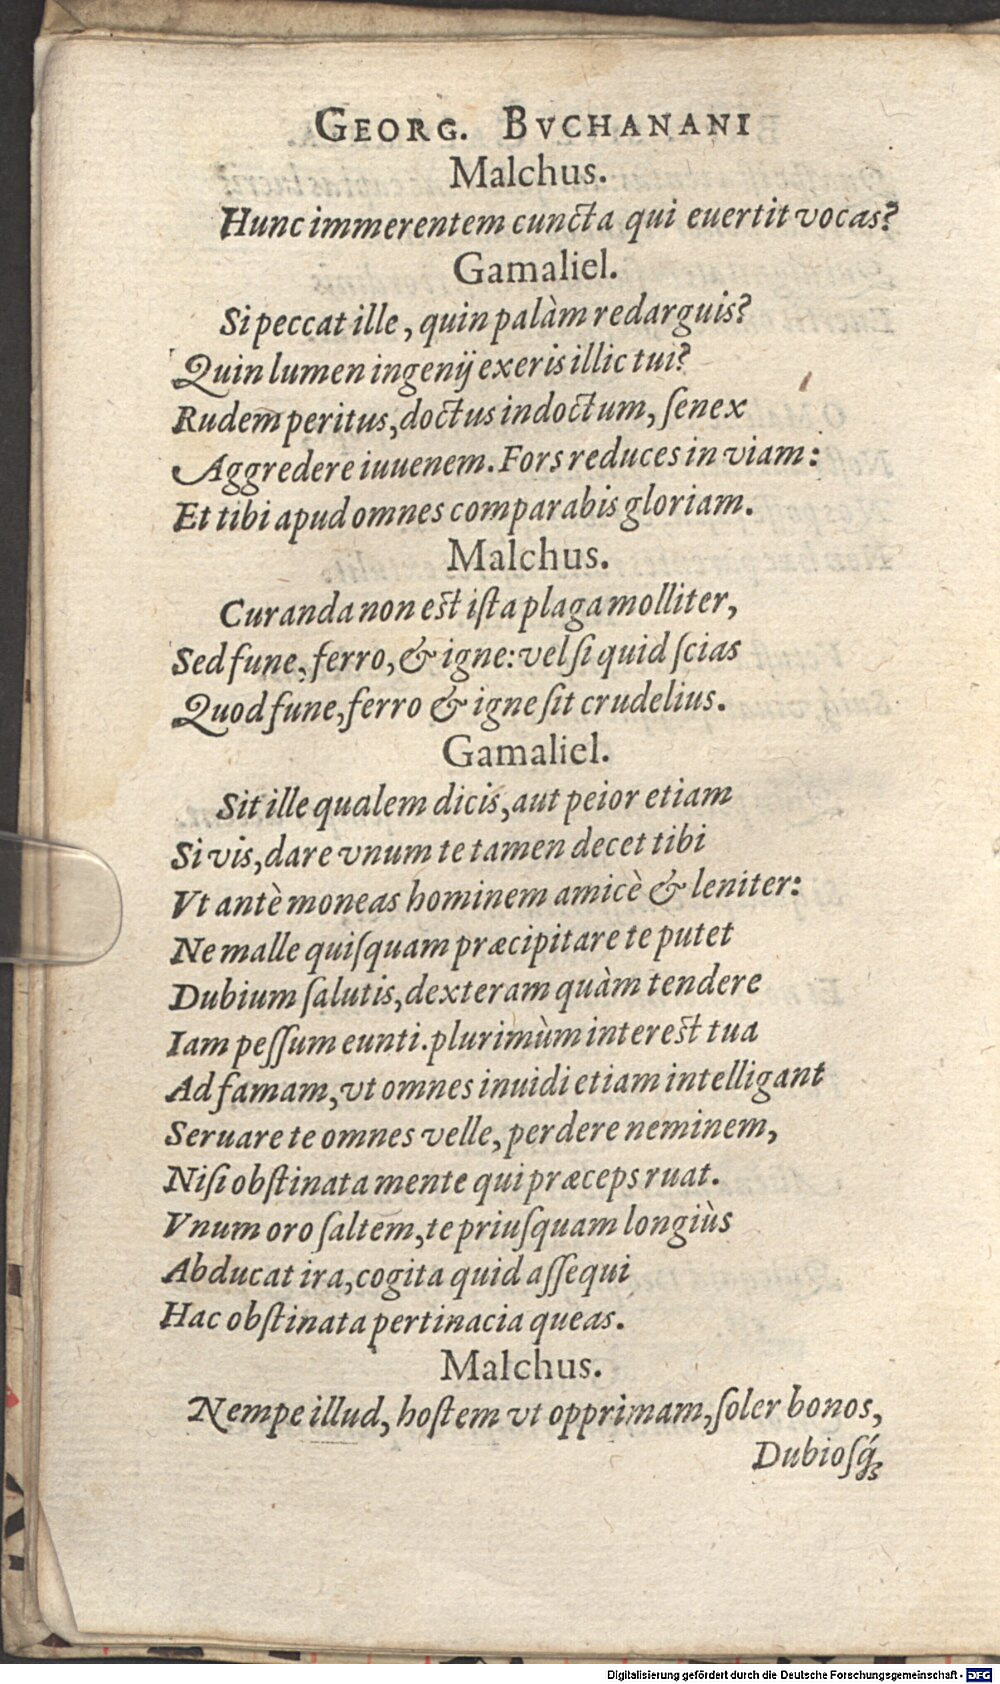 GEORG. BVCHANANI
Malchus.
Hunc immerentem cuncta qui euertit vocas?
Gamaliel.
Si peccat ille, quin palàm redarguis?
Quin lumen ingenij exeris illic tui?
Rudem peritus, doctus indoctum, ſenex
Aggredere iuuenem. Fors reduces in viam:
Et tibi apud omnes comparabis gloriam.
Malchus.
Curanda non est iſta plaga molliter,
Sed fune, ferro, & igne: vel ſi quid ſcias
Quod fune, ferro & igne ſit crudelius.
Gamaliel.
Sit ille qualem dicis, aut peior etiam
Si vis, dare vnum te tamen decet tibi
Vt antè moneas hominem amicè & leniter:
Ne malle quiſquam præcipitare te putet
Dubium ſalutis, dexteram quàm tendere
Iam peſſum eunti. plurimùm interest tua
Ad famam, vt omnes inuidi etiam intelligant
Seruare te omnes velle, perdere neminem,
Niſi obſtinata mente qui præceps ruat.
Vnum oro ſaltem, te priuſquam longiùs
Abducat ira, cogita quid aſſequi
Hac obſtinata pertinacia queas.
Malchus.
Nempe illud, hoſtem vt opprimam, ſoler bonos,
Dubioſq́;
Digitalisierung gefördert durch die Deutsche Forschungsgemeinschaft - DFG